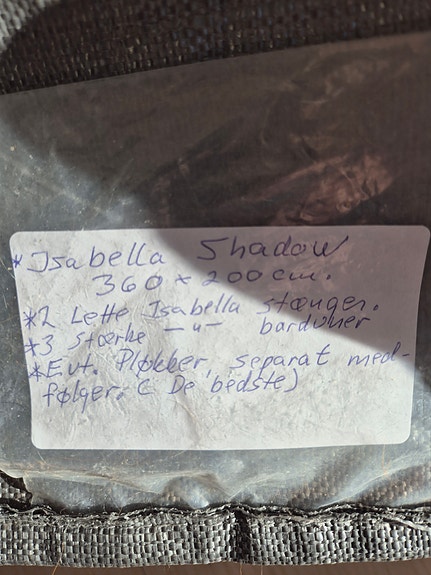 * Isabella Shadow
360 x 200 cm.
*2 Lette Isabella stænger.
*3 Stærke —"— barduner
*Evt. Pløkker, separat med-
følger. ( De bedste)